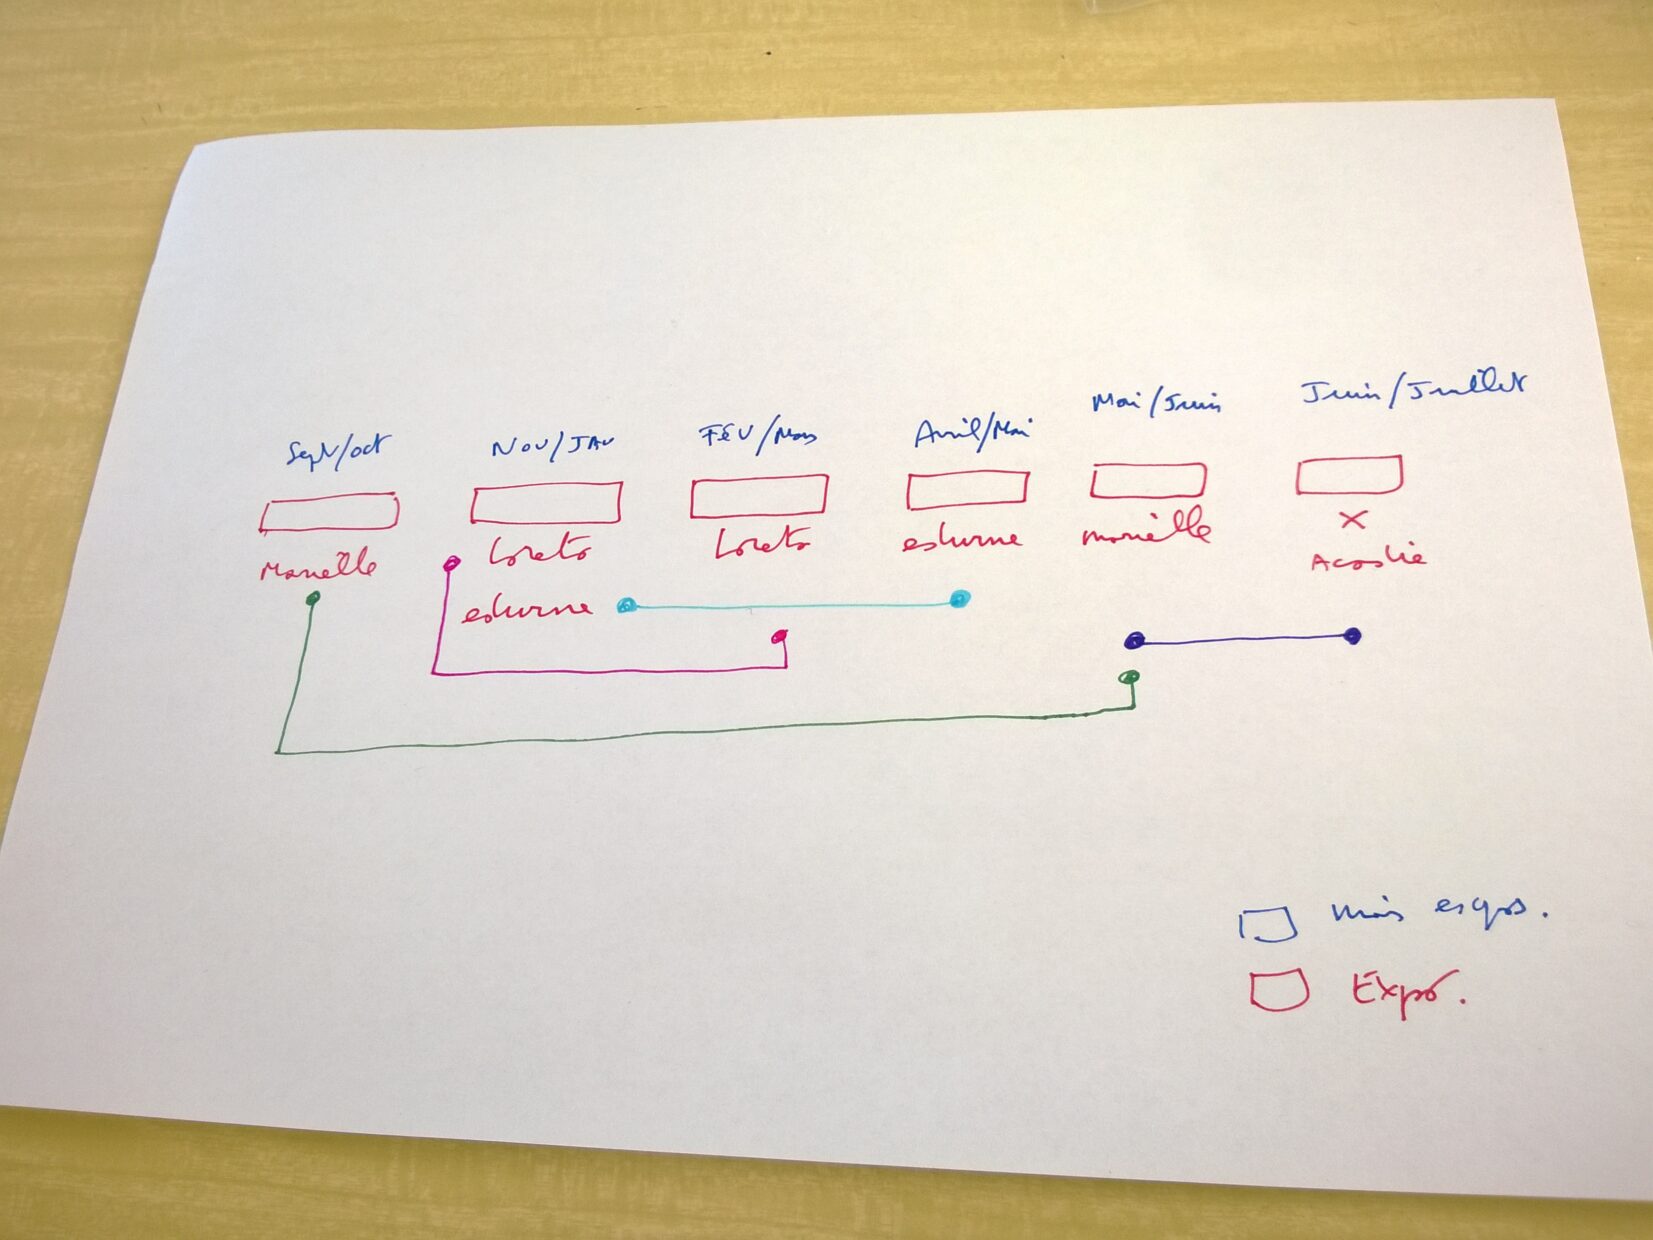 Sept/oct
Nov/JAN
FÉV/Mars
Avril/Mai
Mai/Juin
Juin/Juillet
Marielle
Loreto
Loreto
esturne
marielle
X
Acostie
esturne
mois expos.
Expo.